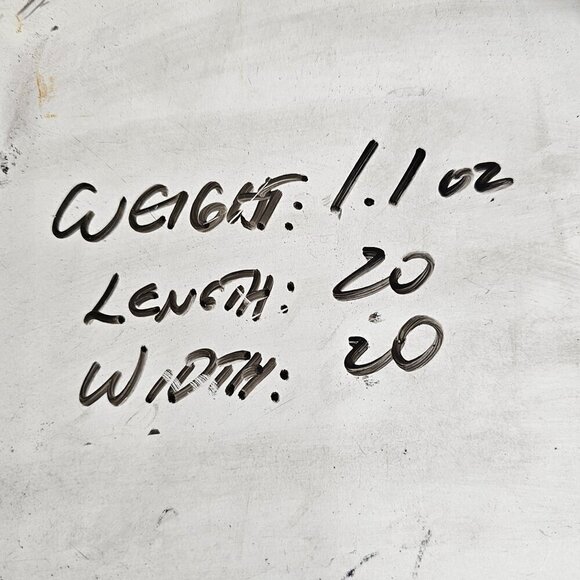 WEIGHT: 1.1 oz
LENGTH: 20
WIDTH: 20